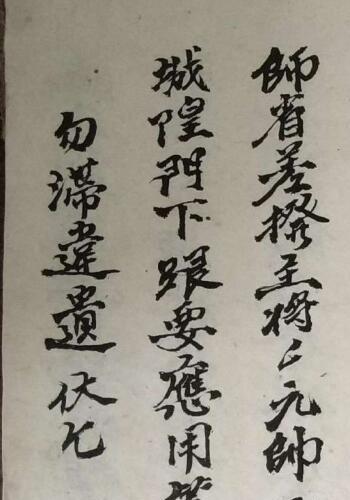 師省差撥主將〻元帥
城隍門下跟要應用
勿滞違遺伏乞